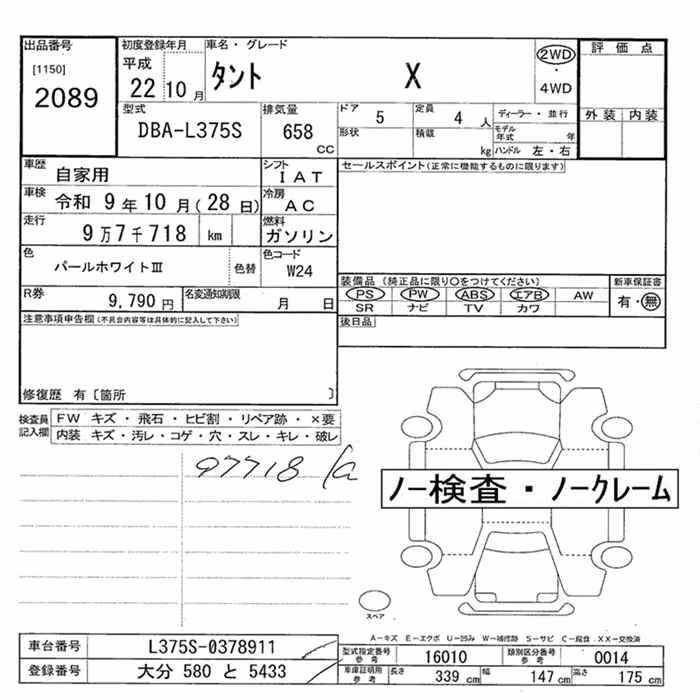 出品番号
[1150]
2089
初度登録年月
平成
22 10 月
車名・グレード
タント X
2WD
・
4WD
評価点
外装 内装
型式
DBA-L375S
排気量
658
CC
ドア 5
形状
定員 4 人
積載 kg
ディーラー・並行
モデル年式 年
ハンドル 左・右
車歴
自家用
シフト
IAT
セールスポイント(正常に機能するものに限ります)
車検
令和 9 年 10 月(28 日)
冷房
AC
走行
9万7千718 km
燃料
ガソリン
色
パールホワイトIII
色替
色コード
W24
装備品(純正品に限り○をつけてください)
PS PW ABS エアB AW
SR ナビ TV カワ
新車保証書
有・無
R券
9.790 円
名変通知期限
月 日
注意事項申告欄(不具合内容等は具体的に記入して下さい)
後日品
修復歴 有〔箇所 〕
検査員記入欄
FW キズ・飛石・ヒビ割・リペア跡・×要
内装 キズ・汚レ・コゲ・穴・スレ・キレ・破レ
97718
ノー検査・ノークレーム
スペア
A-キズ E-エクボ U-凹み W-補修跡 S-サビ C-腐食 XX-交換済
車台番号
L375S-0378911
登録番号
大分 580 と 5433
型式指定番号
参考
16010
類別区分番号
参考
0014
車庫証明用
参考
長さ 339 cm
幅 147 cm
高さ 175 cm